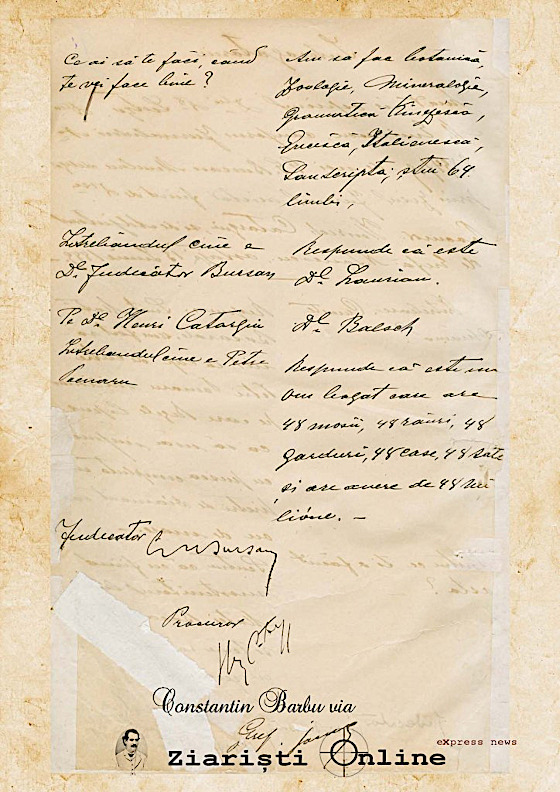 Ce ai să te faci, când
te vei face bine?
Am să fac botanică,
Zoologie, Mineralogie,
Gramatică Kinezească,
Grecească, Italienească,
Sanscripta, știu 64
limbi,
Întrebându-l cine e
Dl. Judecător Bursan
Respunde că este
Dl. Laurian.
Pe Dl. Henri Catargiu
Dl. Balsch
Întrebându-l cine e Petre
Poenaru
Respunde că este un
om bogat care are
48 mosii, 48 râuri, 48
garduri, 48 case, 48 sate
și are avere de 48 mi
lióne. —
Judecător C. N. Bursan
Procuror
Constantin Barbu via
Gref.
Ziariști Online
eXpress news